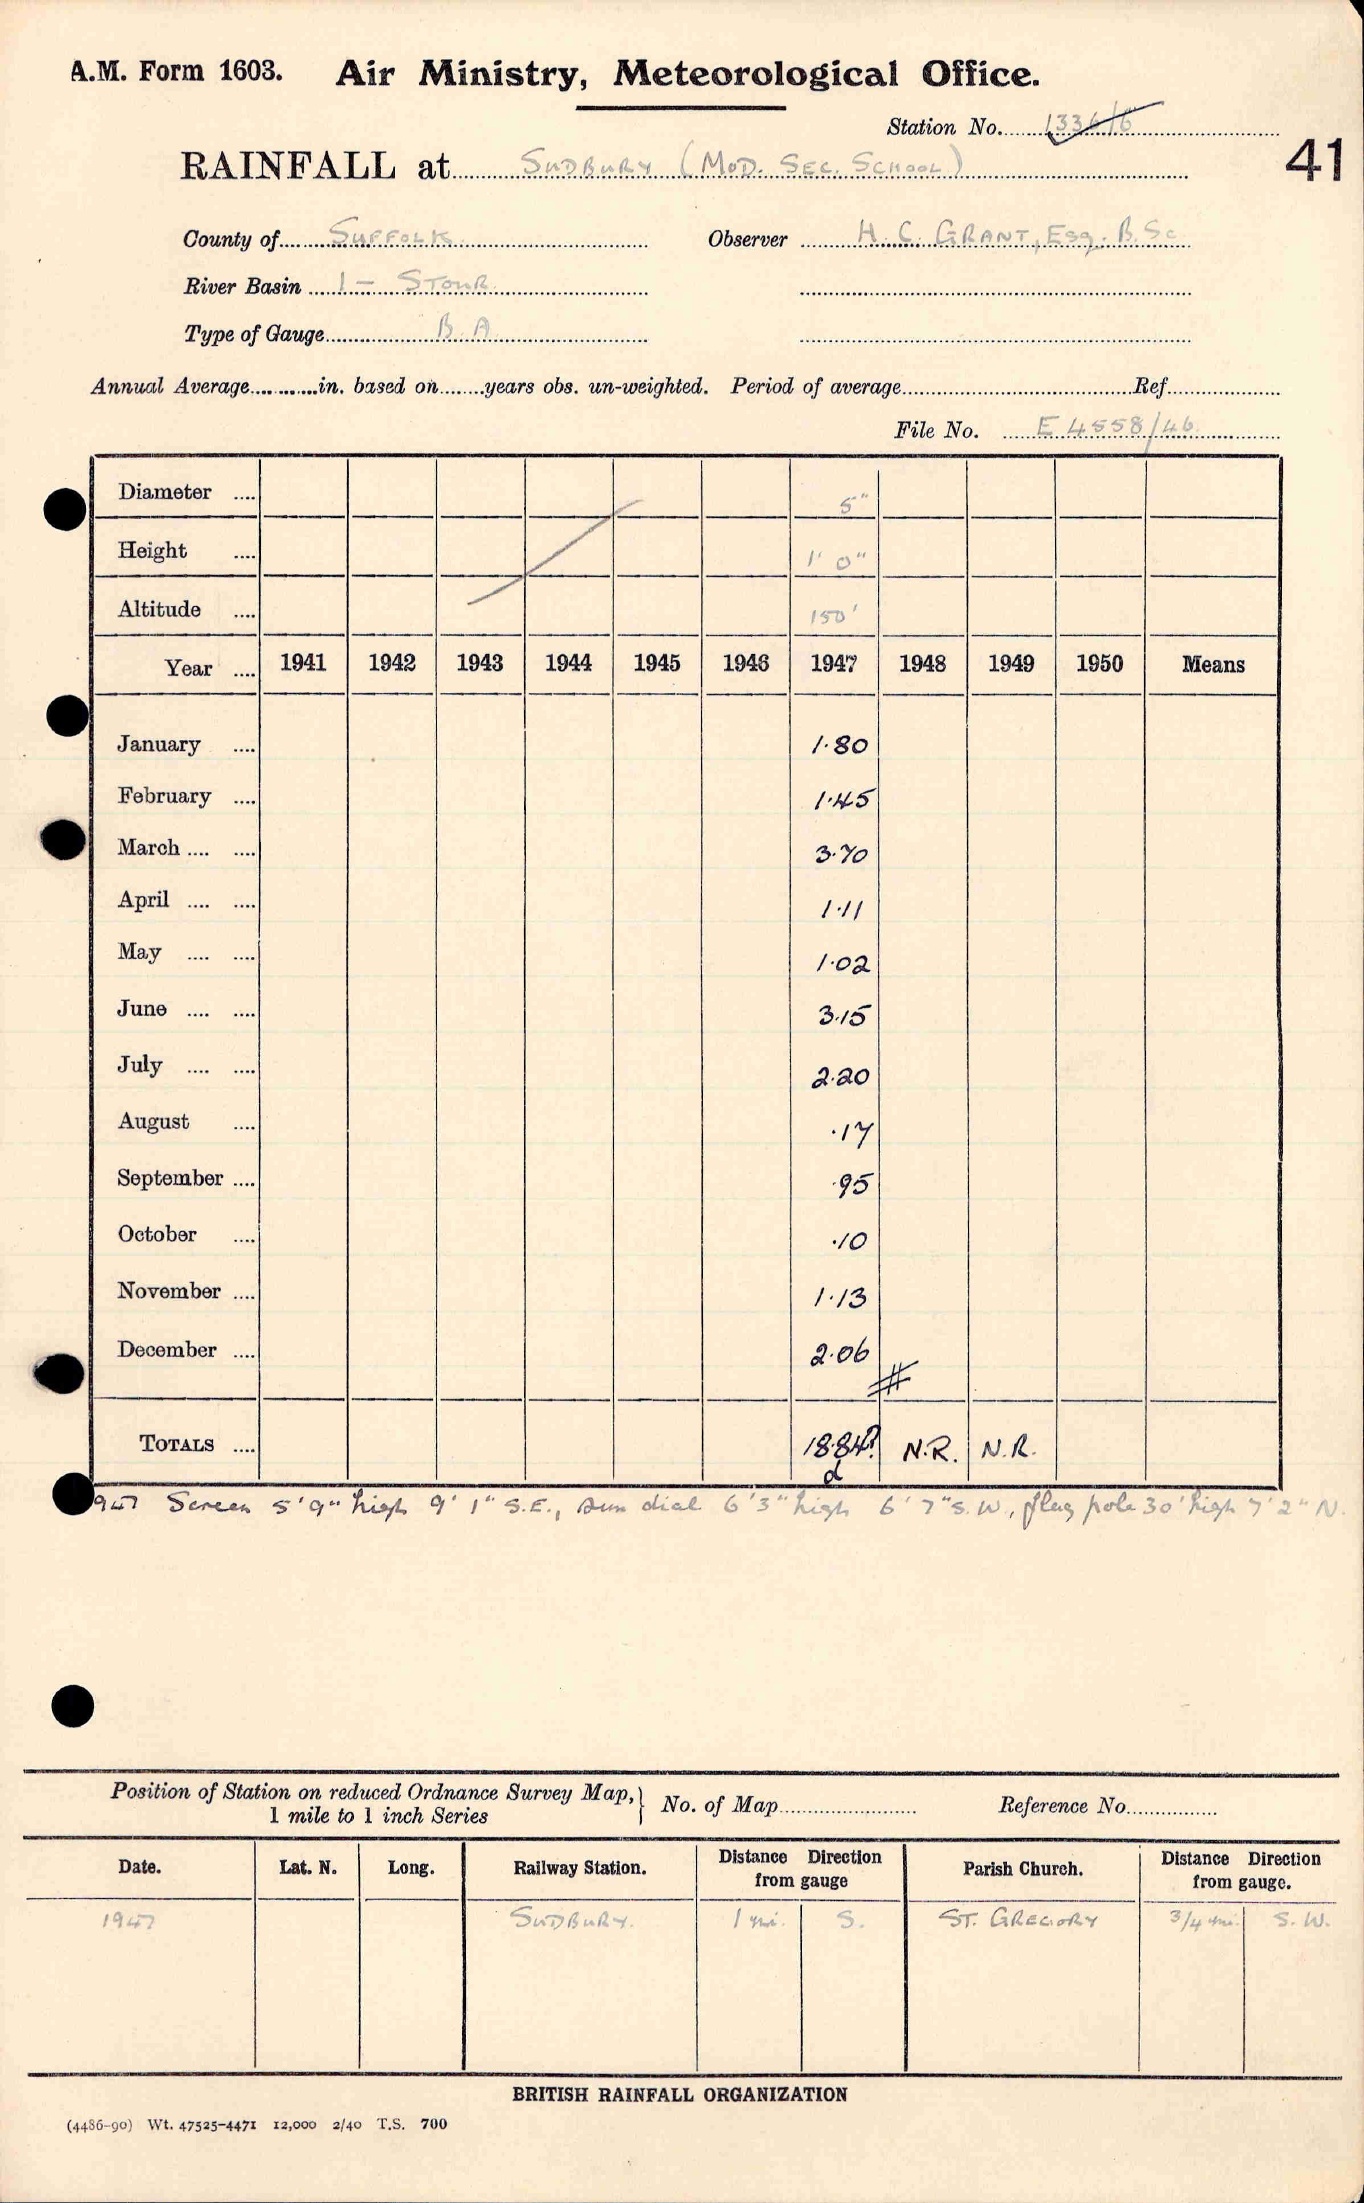 A.M. Form 1603. Air Ministry, Meteorological Office.
Station No. 1336/6
41
RAINFALL at SUDBURY (MOD. SEC. SCHOOL)
County of SUFFOLK Observer H. C. GRANT, Esq. B.Sc
River Basin 1 – STOUR
Type of Gauge B. A.
Annual Average in. based on years obs. un-weighted. Period of average Ref.
File No. E 4558/46
Diameter .... 5"
Height .... 1' 0"
Altitude .... 150'
Year .... 1941 1942 1943 1944 1945 1946 1947 1948 1949 1950 Means
January .... 1.80
February .... 1.45
March .... .... 3.70
April .... .... 1.11
May .... .... 1.02
June .... .... 3.15
July .... .... 2.20
August .... .17
September .... .95
October .... .10
November .... 1.13
December .... 2.06
TOTALS .... 18.84? N.R. N.R.
d
1947 Screen 5'9" high 9' 1" S.E., sun dial 6'3" high 6' 7" S.W., flag pole 30' high 7' 2" N.
Position of Station on reduced Ordnance Survey Map, } No. of Map Reference No.
1 mile to 1 inch Series
Date. Lat. N. Long. Railway Station. Distance Direction from gauge Parish Church. Distance Direction from gauge.
1947 SUDBURY. 1 mi. S. ST. GREGORY 3/4 mi. S.W.
BRITISH RAINFALL ORGANIZATION
(4486-90) Wt. 47525-4471 12,000 2/40 T.S. 700